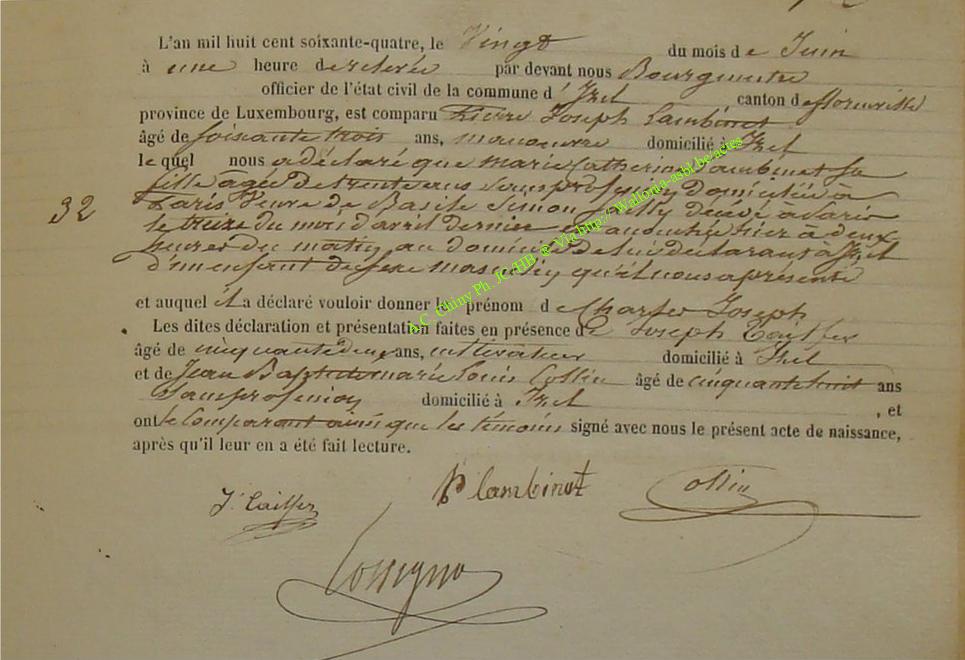 L'an mil huit cent soixante-quatre, le Vingt du mois de Juin
à une heure de relevée par devant nous Bourgmestre
officier de l'état civil de la commune d'Izel canton de florenville
province de Luxembourg, est comparu Pierre Joseph Lambinet
âgé de soixante trois ans, manoeuvre domicilié à Izel
lequel nous a déclaré que marie Catherine Lambinet sa
fille âgée de trente ans sans profession domiciliée à
Paris Veuve de Basile Simon décédé à Paris
le treize du mois d'avril dernier est accouchée hier à deux
heures du matin au domicile de lui déclarant à Izel
d'un enfant du sexe masculin qu'il nous a présenté
32
et auquel il a déclaré vouloir donner le prénom de Charles Joseph
Les dites déclaration et présentation faites en présence de Joseph Tailfer
âgé de cinquante deux ans, cultivateur domicilié à Izel
et de Jean Baptiste marie Louis Collin âgé de cinquante huit ans
sans profession domicilié à Izel , et
ont le comparant ainsi que les témoins signé avec nous le présent acte de naissance,
après qu'il leur en a été fait lecture.
J. Tailfer
P Lambinet
Collin
Rossignon
A.C. Chiny Ph. JC/HB @ Via http:// Wallonia-asbl.be/actes